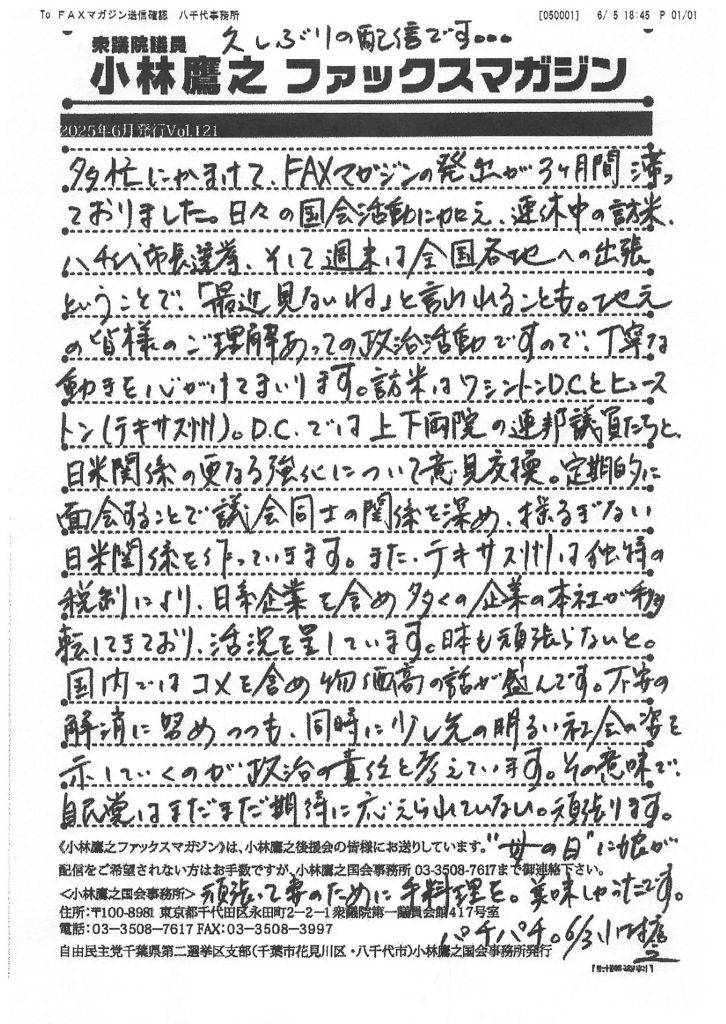 To FAXマガジン送信確認 八千代事務所 [050001] 6/ 5 18:45 P 01/01
久しぶりの配信です...
衆議院議員
小林鷹之 ファックスマガジン
2025年6月発行Vol.121
多忙にかまけて、FAXマガジンの発出が3ヶ月間滞っ
ておりました。日々の国会活動に加え、連休中の訪米、
八千代市長選挙、そして週末は全国各地への出張
ということで、「最近見ないね」と言われることも。地元
の皆様のご理解あっての政治活動ですので、丁寧な
動きを心がけてまいります。訪米はワシントンD.C.とヒュース
トン(テキサス州)。D.C.では上下両院の連邦議員たちと、
日米関係の更なる強化について意見交換。定期的に
面会することで議会同士の関係を深め、揺るぎない
日米関係を作っていきます。また、テキサス州は独特の
税制により、日系企業を含め多くの企業の本社が移
転してきており、活況を呈しています。日本も頑張らないと。
国内ではコメを含め物価高の話が盛んです。不安の
解消に努めつつも、同時に少し先の明るい社会の姿を
示していくのが政治の責任と考えています。その意味で、
自民党はまだまだ期待に応えられていない。頑張ります。
《小林鷹之ファックスマガジン》は、小林鷹之後援会の皆様にお送りしています。"母の日"に娘が
配信をご希望されない方はお手数ですが、小林鷹之国会事務所 03-3508-7617まで御連絡下さい。
<小林鷹之国会事務所> 頑張って妻のために手料理を。美味しゅうたです。
住所:〒100-8981 東京都千代田区永田町2-2-1衆議院第一議員会館417号室
電話:03-3508-7617 FAX:03-3508-3997 パチパチ。6/3 小林鷹之
自由民主党千葉県第二選挙区支部(千葉市花見川区・八千代市)小林鷹之国会事務所発行
[討議資料]